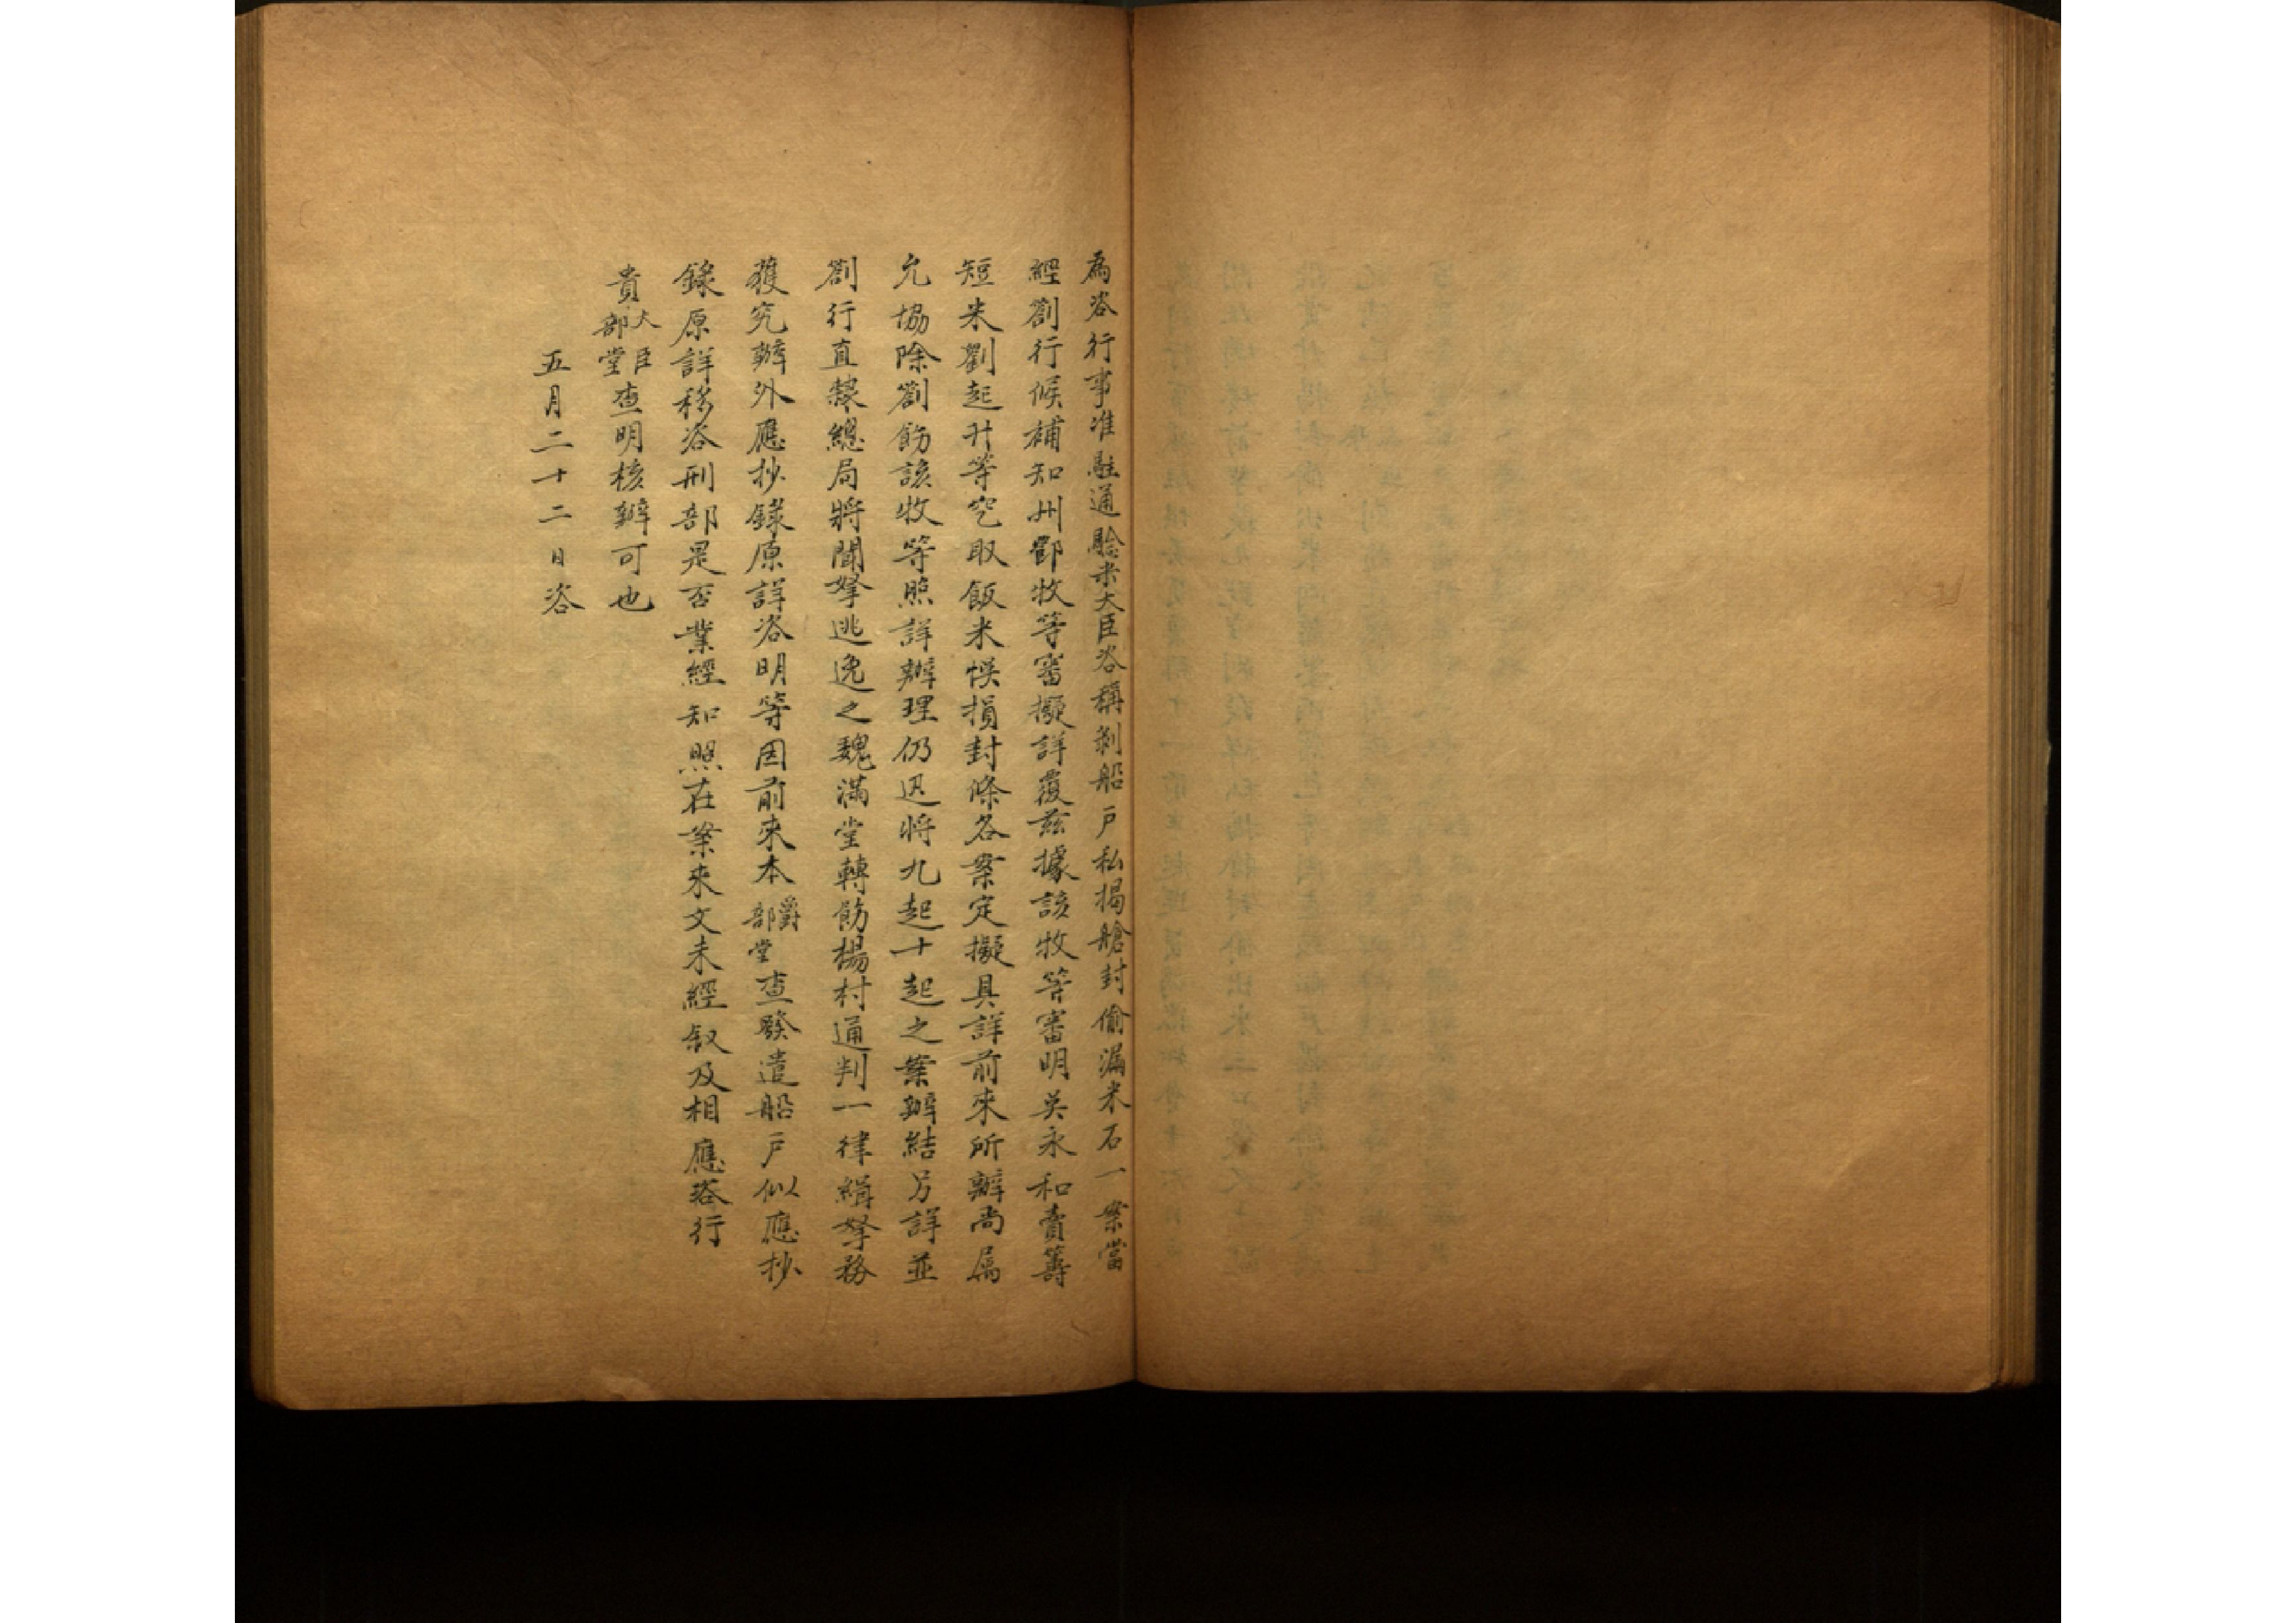 為咨行事准駐通驗米大臣咨稱剝船戶私揭艙封偷漏米石一案當
經劄行候補知州鄒牧等審擬詳覆茲據該牧等審明吳永和賣籌
短米劉起升等空取飯米悞損封條各案定擬具詳前來所辦尚属
允協除劄飭該牧等照詳辦理仍迅將九起十起之案辦結另詳並
劄行直隸總局將聞拏逃逸之魏滿堂轉飭楊村通判一律緝拏務
獲究辦外應抄錄原詳咨明等因前來本爵部堂查發遣船戶似應抄
錄原詳移咨刑部是否業經知照在案來文未經叙及相應咨行
貴大臣部堂查明核辦可也
五月二十二日咨